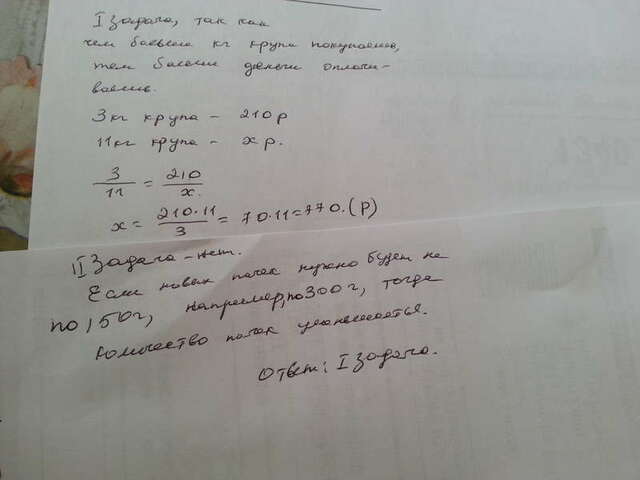 I задача, так как
чем больше кг крупы покупаешь,
тем больше деньги оплачи-
ваешь.
3 кг крупа - 210 р
11 кг крупа - x р.
3/11 = 210/x.
x = 210·11/3 = 70·11 = 770. (р)
II Задача - нет.
Если новых пачек нужно будет не
по 150г, например, по 300г, тогда
количество пачек уменьшается.
Ответ: I задача.